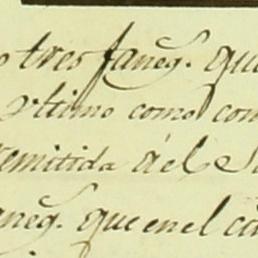 tres faneg.s que
vltimo como con
remitida àel
aneg.s que en el